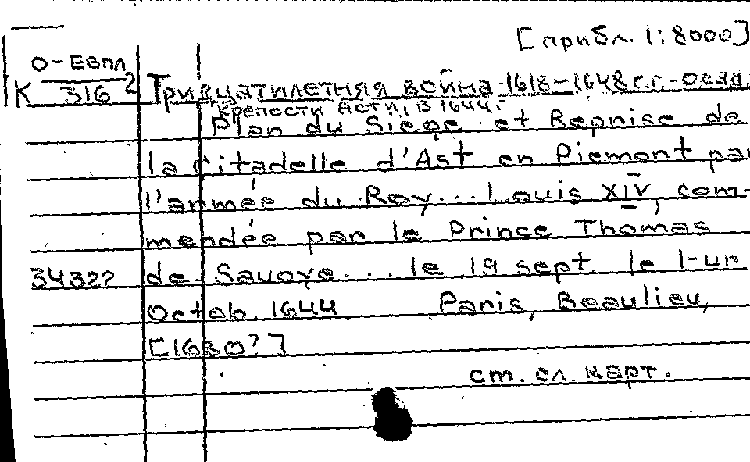 [прибл. 1:8000]
О-Евпл
К 2
316
Тридцатилетняя война 1618-1648 г.г.-осада
крепости Асти, в 1644г.
Plan du Siège et Reprise de
la citadelle d'Ast en Piemont par
l'armée du Roy... Louis XIV, com-
mendée par le Prince Thomas
34322 de Savoye... le 19 sept. le 1-un
Octob. 1644 Paris, Beaulieu,
[1680?]
ст. сл. карт.